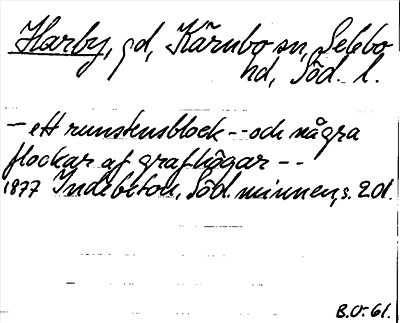 Harby, gd, Kärnbo sn, Selebo
hd, Söd. l.
— ett runstensblock -- och några
flockar af grafhögar --
1877 Indebetou, Söd. minnen, s. 20.
B.O-61.